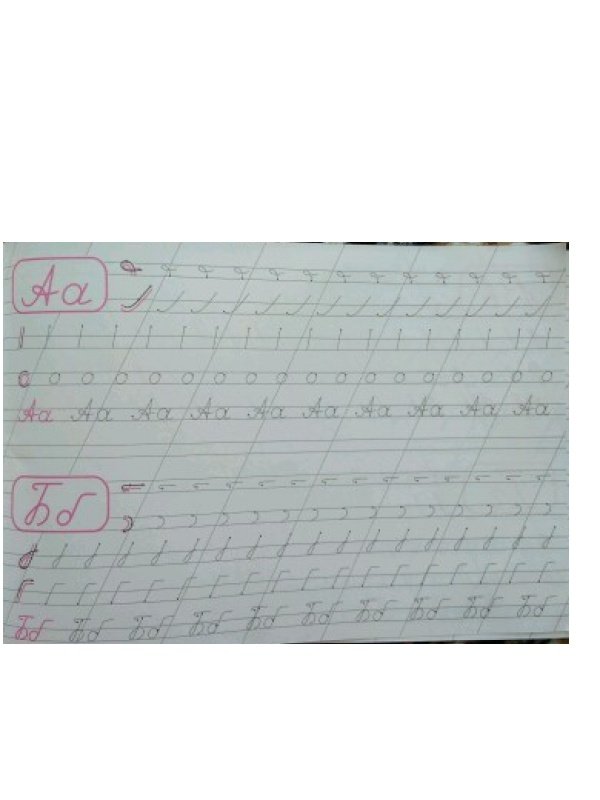 Аа
Аа Аа Аа Аа Аа Аа Аа Аа Аа Аа
Бб
Бб Бб Бб Бб Бб Бб Бб Бб Бб Бб